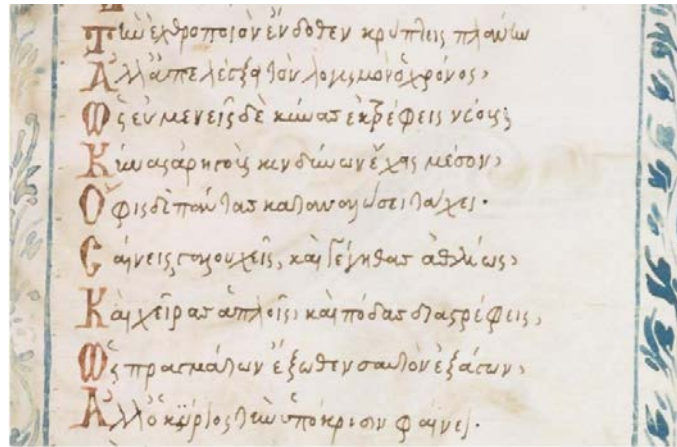 Τὴν ἐχθροποιὸν ἔνδοθεν κρύπτεις πλάνην
Ἀλλ' ἀπελέγξει τὸν λογισμὸν ὁ χρόνος,
Ὡς εὐμενεῖς δὲ κύνας ἐκτρέφεις νέους;
Κύνας κινδύνων ἔχῃς μέσον,
Ὄφις δὲ πάντας καταναλώσει τάχει.
Σαίνεις, καὶ γέγηθας ἀθλίως,
Καὶ χεῖρας ἁπλοῖς, καὶ πόδας διαστρέφεις,
Ὡς πραγμάτων ἔξωθεν σαυτὸν ἐξάγων,
Ἀλλ' ὁ κύριος τὴν ὑπόκρισιν φαίνει.